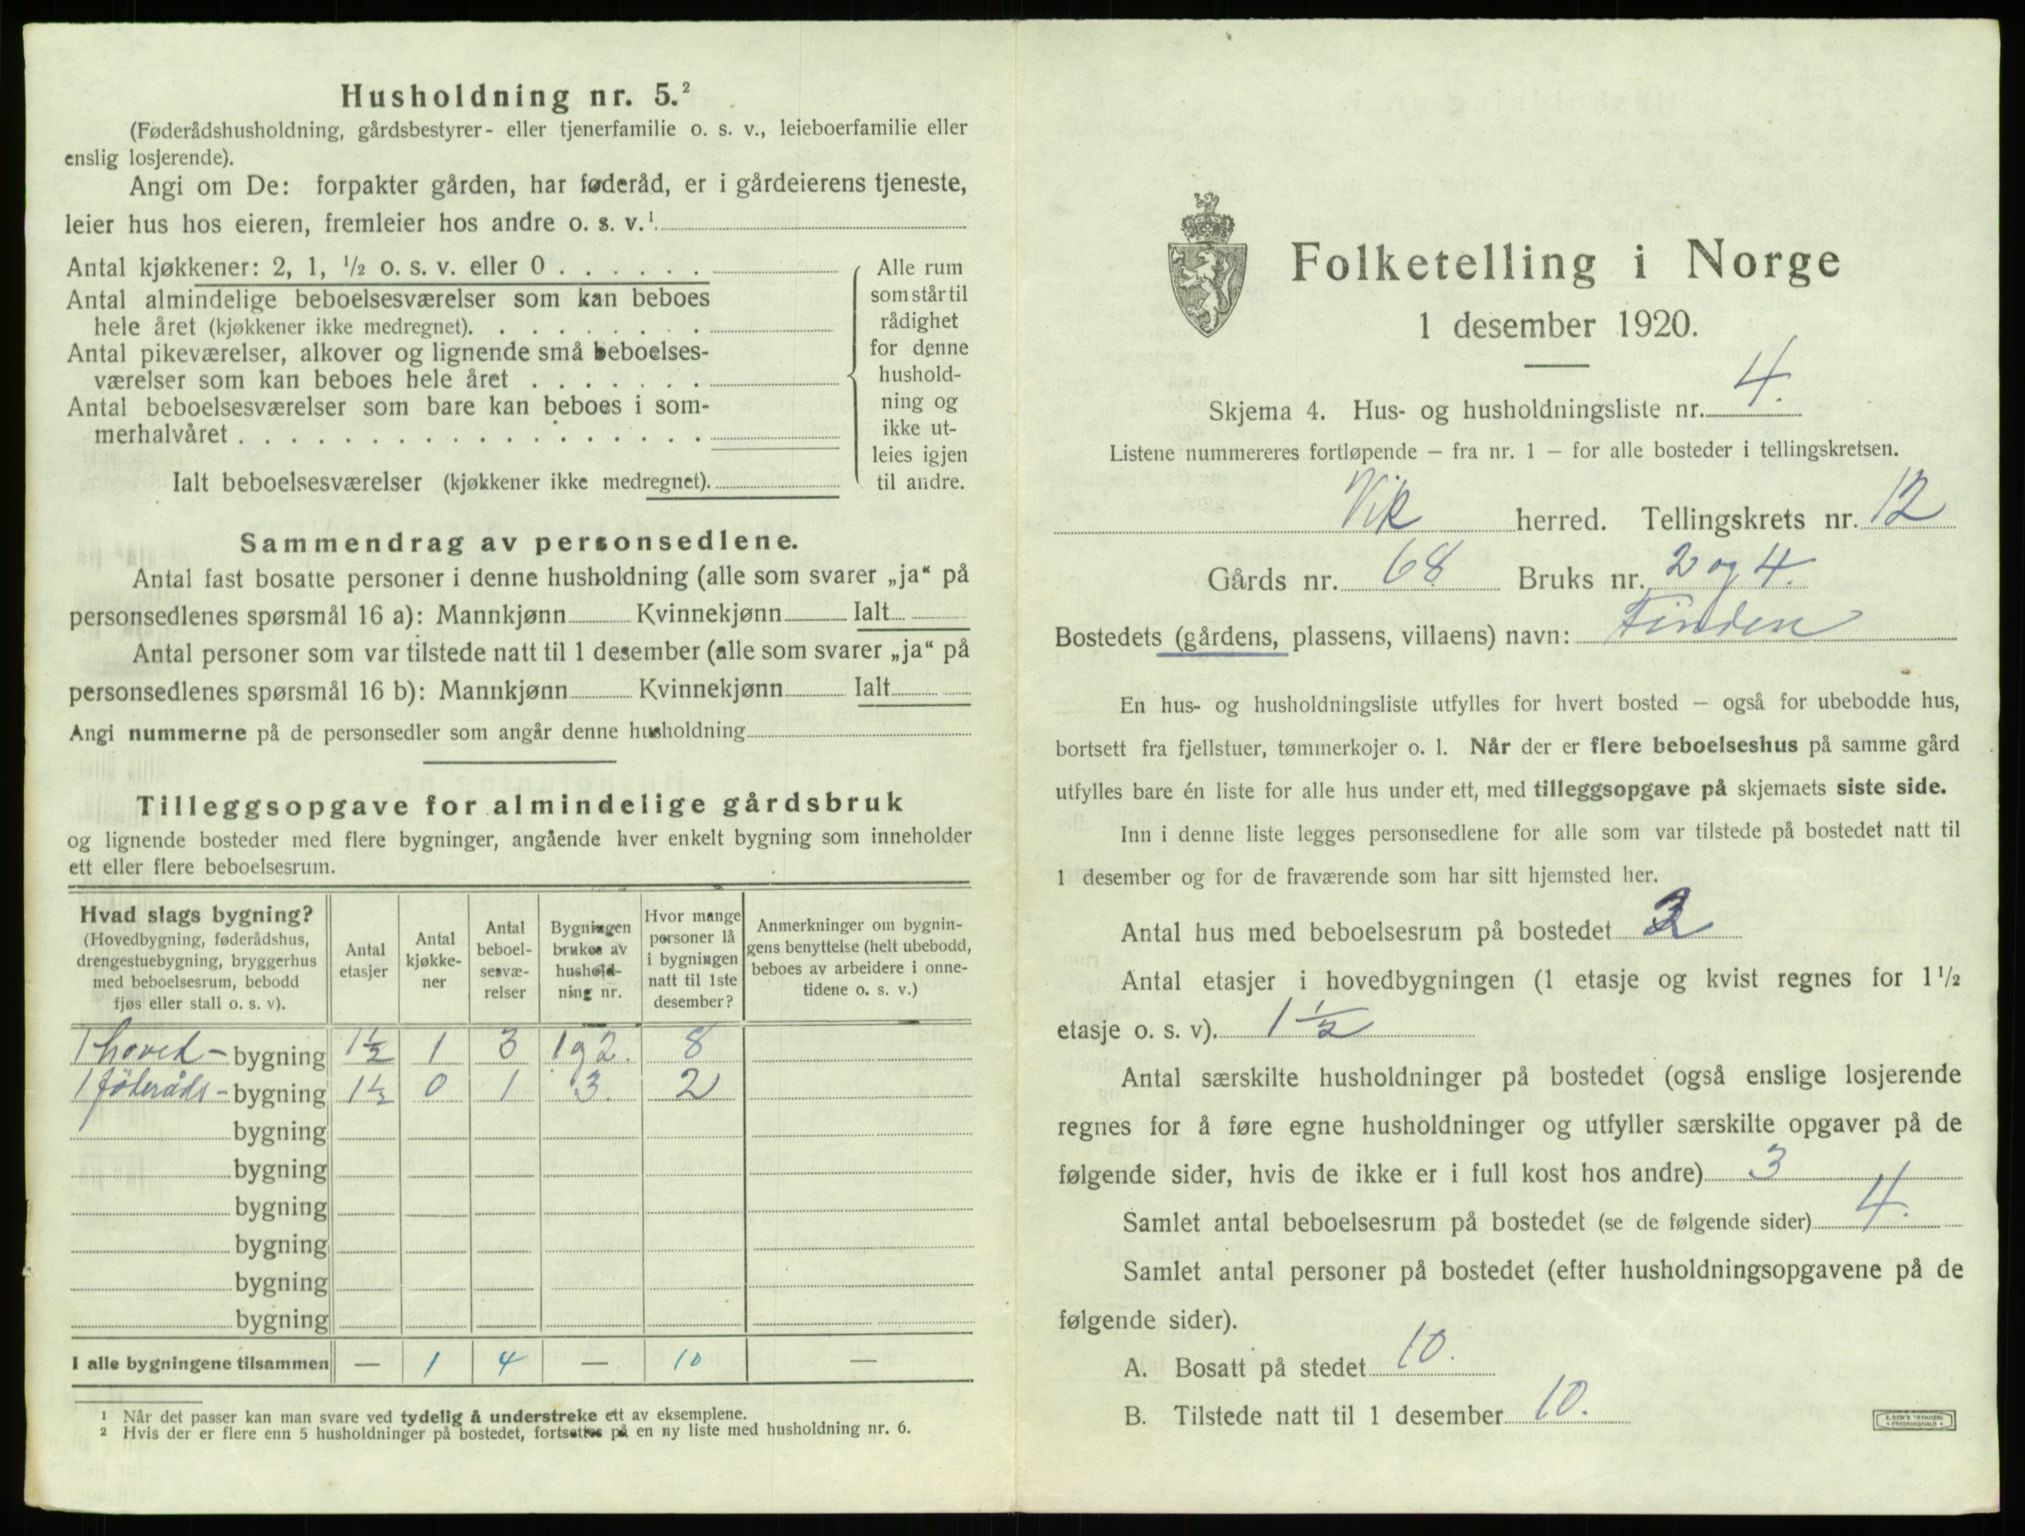 Husholdning nr. 5.²
(Føderådshusholdning, gårdsbestyrer- eller tjenerfamilie o. s. v., leieboerfamilie eller
enslig losjerende).
Angi om De: forpakter gården, har føderåd, er i gårdeierens tjeneste,
leier hus hos eieren, fremleier hos andre o. s. v.¹
Antal kjøkkener: 2, 1, ½ o. s. v. eller 0
Antal almindelige beboelsesværelser som kan beboes
hele året (kjøkkener ikke medregnet).
Antal pikeværelser, alkover og lignende små beboelses-
værelser som kan beboes hele året
Antal beboelsesværelser som bare kan beboes i som-
merhalvåret
Ialt beboelsesværelser (kjøkkener ikke medregnet).
Alle rum
som står til
rådighet
for denne
hushold-
ning og
ikke ut-
leies igjen
til andre.
Sammendrag av personsedlene.
Antal fast bosatte personer i denne husholdning (alle som svarer „ja“ på
personsedlenes spørsmål 16 a): Mannkjønn Kvinnekjønn Ialt
Antal personer som var tilstede natt til 1 desember (alle som svarer „ja“ på
personsedlenes spørsmål 16 b): Mannkjønn Kvinnekjønn Ialt
Angi nummerne på de personsedler som angår denne husholdning
Tilleggsopgave for almindelige gårdsbruk
og lignende bosteder med flere bygninger, angående hver enkelt bygning som inneholder
ett eller flere beboelsesrum.
Hvad slags bygning?
(Hovedbygning, føderådshus,
drengestuebygning, bryggerhus
med beboelsesrum, bebodd
fjøs eller stall o. s. v).
Antal
etasjer
Antal
kjøkke-
ner
Antal
beboel-
sesvæ-
relser
Bygningen
brukes av
hushold-
ning nr.
Hvor mange
personer lå
i bygningen
natt til 1ste
desember?
Anmerkninger om bygnin-
gens benyttelse (helt ubebodd,
beboes av arbeidere i onne-
tidene o. s. v.)
1 hoved- bygning 1½ 1 3 1 og 2. 8
1 föderåds- bygning 1½ 0 1 3. 2
bygning
bygning
bygning
bygning
bygning
bygning
I alle bygningene tilsammen — 1 4 — 10 —
¹ Når det passer kan man svare ved tydelig å understreke ett av eksemplene.
² Hvis der er flere enn 5 husholdninger på bostedet, fortsettes på en ny liste med husholdning nr. 6.
Folketelling i Norge
1 desember 1920.
Skjema 4. Hus- og husholdningsliste nr. 4.
Listene nummereres fortløpende – fra nr. 1 – for alle bosteder i tellingskretsen.
Vik herred. Tellingskrets nr. 12
Gårds nr. 68 Bruks nr. 2 og 4.
Bostedets (gårdens, plassens, villaens) navn: Finden
En hus- og husholdningsliste utfylles for hvert bosted – også for ubebodde hus,
bortsett fra fjellstuer, tømmerkojer o. l. Når der er flere beboelseshus på samme gård
utfylles bare én liste for alle hus under ett, med tilleggsopgave på skjemaets siste side.
Inn i denne liste legges personsedlene for alle som var tilstede på bostedet natt til
1 desember og for de fraværende som har sitt hjemsted her.
Antal hus med beboelsesrum på bostedet 2
Antal etasjer i hovedbygningen (1 etasje og kvist regnes for 1½
etasje o. s. v). 1½
Antal særskilte husholdninger på bostedet (også enslige losjerende
regnes for å føre egne husholdninger og utfyller særskilte opgaver på de
følgende sider, hvis de ikke er i full kost hos andre) 3
Samlet antal beboelsesrum på bostedet (se de følgende sider) 4.
Samlet antal personer på bostedet (efter husholdningsopgavene på de
følgende sider).
A. Bosatt på stedet 10.
B. Tilstede natt til 1 desember 10.